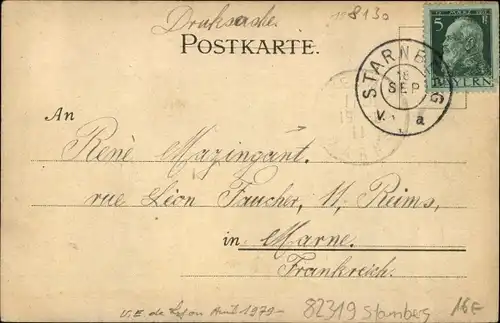 Drucksache.
8130
POSTKARTE.
5
BAYERN
STARNBERG
16
SEP
V. a
19
11
An
René Mazingant.
rue Léon Faucher, 11, Reims,
in Marne.
Frankreich.
V.E. de Lyon Avril 1979-
82319 Starnberg 16E